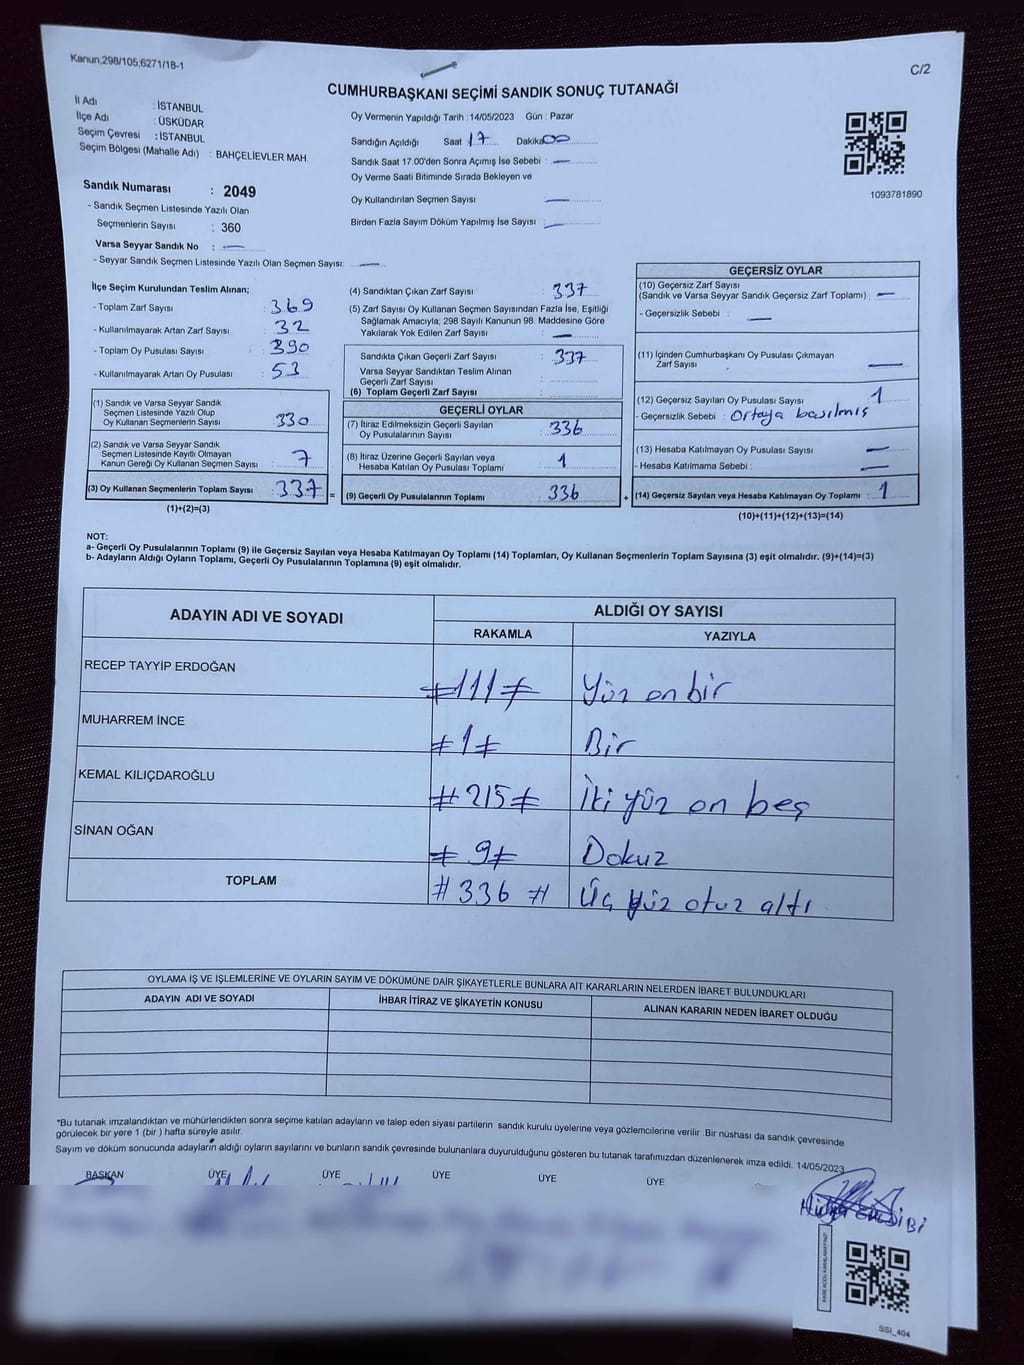 Kanun,298/105,6271/18-1
C/2
CUMHURBAŞKANI SEÇİMİ SANDIK SONUÇ TUTANAĞI
İl Adı : İSTANBUL
İlçe Adı : ÜSKÜDAR
Seçim Çevresi : İSTANBUL
Seçim Bölgesi (Mahalle Adı) : BAHÇELİEVLER MAH.
Sandık Numarası : 2049
- Sandık Seçmen Listesinde Yazılı Olan
Seçmenlerin Sayısı : 360
Varsa Seyyar Sandık No : —
- Seyyar Sandık Seçmen Listesinde Yazılı Olan Seçmen Sayısı: —
Oy Vermenin Yapıldığı Tarih : 14/05/2023 Gün : Pazar
Sandığın Açıldığı Saat : 17 Dakika : 00
Sandık Saat 17.00'den Sonra Açımış İse Sebebi : —
Oy Verme Saati Bitiminde Sırada Bekleyen ve
Oy Kullandırılan Seçmen Sayısı —
Birden Fazla Sayım Döküm Yapılmış İse Sayısı : —
1093781890
İlçe Seçim Kurulundan Teslim Alınan;
- Toplam Zarf Sayısı : 369
- Kullanılmayarak Artan Zarf Sayısı : 32
- Toplam Oy Pusulası Sayısı : 390
- Kullanılmayarak Artan Oy Pusulası : 53
(1) Sandık ve Varsa Seyyar Sandık
Seçmen Listesinde Yazılı Olup
Oy Kullanan Seçmenlerin Sayısı : 330
(2) Sandık ve Varsa Seyyar Sandık
Seçmen Listesinde Kayıtlı Olmayan
Kanun Gereği Oy Kullanan Seçmen Sayısı : 7
(3) Oy Kullanan Seçmenlerin Toplam Sayısı : 337 =
(1)+(2)=(3)
(4) Sandıktan Çıkan Zarf Sayısı : 337
(5) Zarf Sayısı Oy Kullanan Seçmen Sayısından Fazla İse, Eşitliği
Sağlamak Amacıyla; 298 Sayılı Kanunun 98. Maddesine Göre
Yakılarak Yok Edilen Zarf Sayısı : —
Sandıkta Çıkan Geçerli Zarf Sayısı : 337
Varsa Seyyar Sandıktan Teslim Alınan
Geçerli Zarf Sayısı :
(6) Toplam Geçerli Zarf Sayısı :
GEÇERLİ OYLAR
(7) İtiraz Edilmeksizin Geçerli Sayılan
Oy Pusulalarının Sayısı : 336
(8) İtiraz Üzerine Geçerli Sayılan veya
Hesaba Katılan Oy Pusulası Toplamı : 1
(9) Geçerli Oy Pusulalarının Toplamı : 336 +
GEÇERSİZ OYLAR
(10) Geçersiz Zarf Sayısı
(Sandık ve Varsa Seyyar Sandık Geçersiz Zarf Toplamı) : —
- Geçersizlik Sebebi : —
(11) İçinden Cumhurbaşkanı Oy Pusulası Çıkmayan
Zarf Sayısı : —
(12) Geçersiz Sayılan Oy Pusulası Sayısı : 1
- Geçersizlik Sebebi : Ortaya basılmış
(13) Hesaba Katılmayan Oy Pusulası Sayısı : —
- Hesaba Katılmama Sebebi : —
(14) Geçersiz Sayılan veya Hesaba Katılmayan Oy Toplamı : 1
(10)+(11)+(12)+(13)=(14)
NOT:
a- Geçerli Oy Pusulalarının Toplamı (9) ile Geçersiz Sayılan veya Hesaba Katılmayan Oy Toplamı (14) Toplamları, Oy Kullanan Seçmenlerin Toplam Sayısına (3) eşit olmalıdır. (9)+(14)=(3)
b- Adayların Aldığı Oyların Toplamı, Geçerli Oy Pusulalarının Toplamına (9) eşit olmalıdır.
ADAYIN ADI VE SOYADI
ALDIĞI OY SAYISI
RAKAMLA YAZIYLA
RECEP TAYYİP ERDOĞAN #111# Yüz on bir
MUHARREM İNCE #1# Bir
KEMAL KILIÇDAROĞLU #215# İki yüz on beş
SİNAN OĞAN #9# Dokuz
TOPLAM #336# Üç yüz otuz altı
OYLAMA İŞ VE İŞLEMLERİNE VE OYLARIN SAYIM VE DÖKÜMÜNE DAİR ŞİKAYETLERLE BUNLARA AİT KARARLARIN NELERDEN İBARET BULUNDUKLARI
ADAYIN ADI VE SOYADI İHBAR İTİRAZ VE ŞİKAYETİN KONUSU ALINAN KARARIN NEDEN İBARET OLDUĞU
*Bu tutanak imzalandıktan ve mühürlendikten sonra seçime katılan adayların ve talep eden siyasi partilerin sandık kurulu üyelerine veya gözlemcilerine verilir .Bir nüshası da sandık çevresinde
görülecek bir yere 1 (bir ) hafta süreyle asılır.
Sayım ve döküm sonucunda adayların aldığı oyların sayılarını ve bunların sandık çevresinde bulunanlara duyurulduğunu gösteren bu tutanak tarafımızdan düzenlenerek imza edildi. 14/05/2023
BAŞKAN ÜYE ÜYE ÜYE ÜYE ÜYE
SSI_404